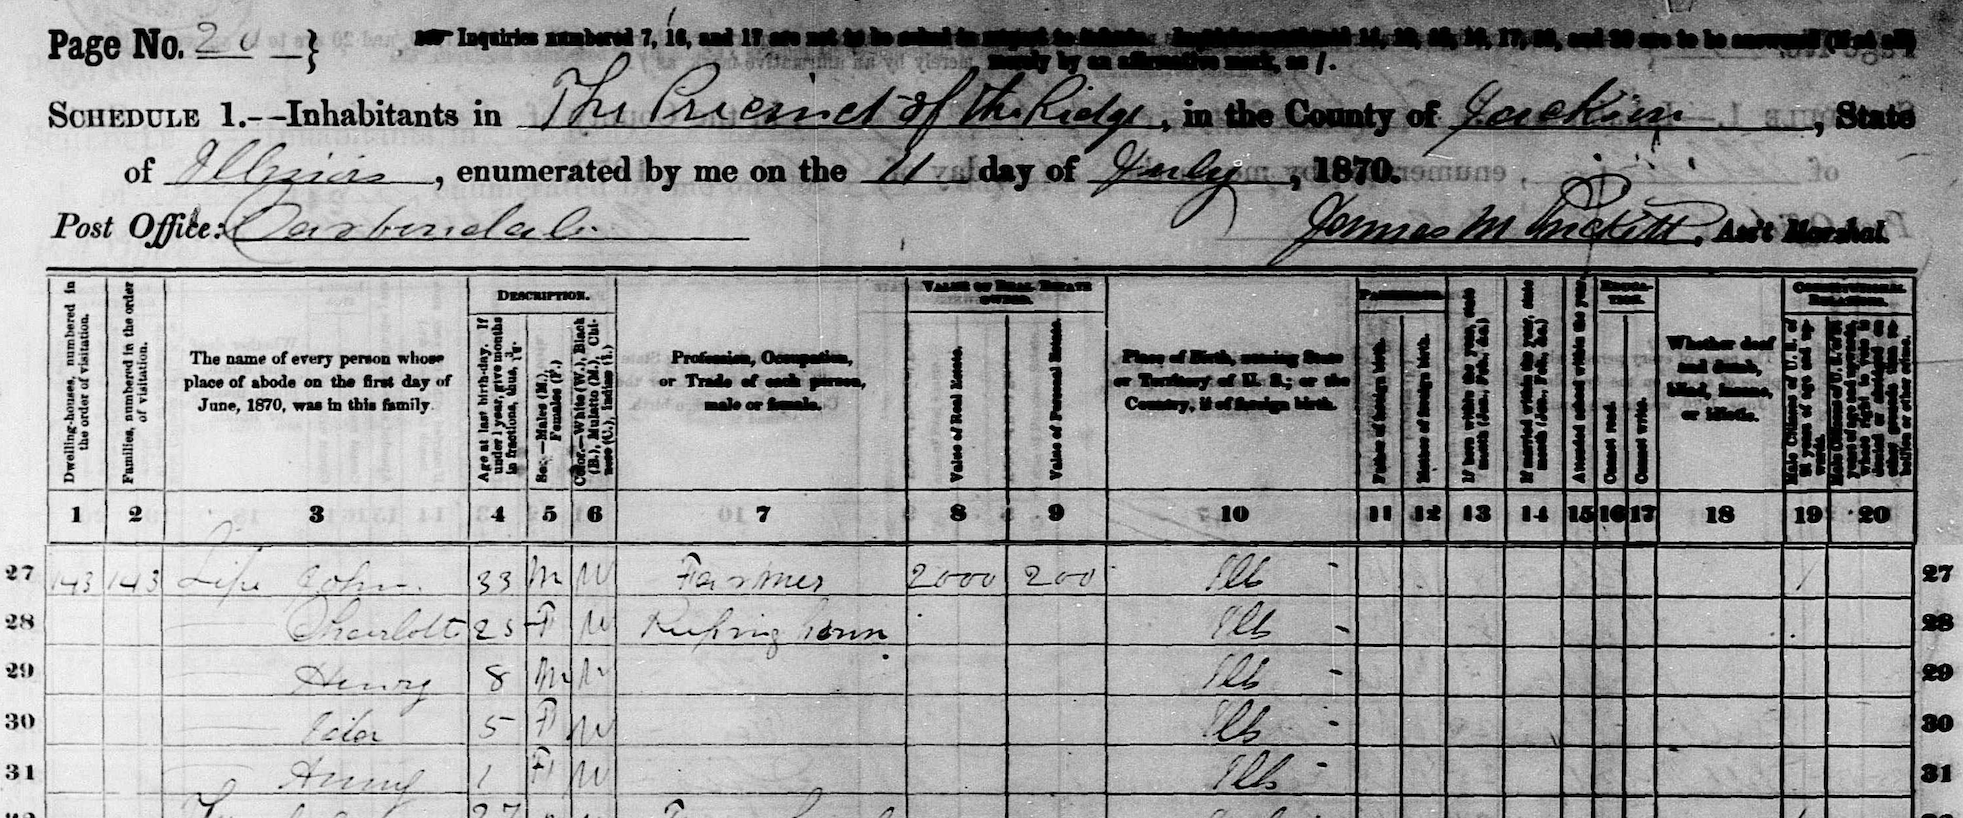 Page No. 20 }
Inquiries numbered 7, 16, and 17 are not to be asked in respect to infants. Inquiries numbered 11, 12, 15, 16, 17, 19, and 20 are to be answered (if at all)
merely by an affirmative mark, as /.
SCHEDULE 1.--Inhabitants in The Precinct of the Ridge, in the County of Jackson, State
of Illinois, enumerated by me on the 11 day of July, 1870.
Post Office: Carbondale James M Prickett, Ass't Marshal.
DESCRIPTION. VALUE OF REAL ESTATE OWNED. PARENTAGE. EDUCATION. CONSTITUTIONAL RELATIONS.
Dwelling-houses, numbered in the order of visitation.
Families, numbered in the order of visitation.
The name of every person whose place of abode on the first day of June, 1870, was in this family.
Age at last birth-day. If under 1 year, give months in fractions, thus,
Sex.—Males (M.), Females (F.)
Color.—White (W.), Black (B.), Mulatto (M.), Chinese (C.), Indian (I.)
Profession, Occupation, or Trade of each person, male or female.
Value of Real Estate.
Value of Personal Estate.
Place of Birth, naming State or Territory of U. S.; or the Country, if of foreign birth.
Father of foreign birth.
Mother of foreign birth.
If born within the year, state month (Jan., Feb., &c.)
If married within the year, state month (Jan., Feb., &c.)
Attended school within the year.
Cannot read.
Cannot write.
Whether deaf and dumb, blind, insane, or idiotic.
Male Citizens of U. S. of 21 years of age and upwards.
1 2 3 4 5 6 7 8 9 10 11 12 13 14 15 16 17 18 19 20
27 143 143 Lipe John 33 M W Farmer 2000 200 Ills 1 27
28 — Charlott 25 F W Keeping house Ills 28
29 — Henry 8 M W Ills 29
30 — Ida 5 F W Ills 30
31 — Anny 1 F W Ills 31